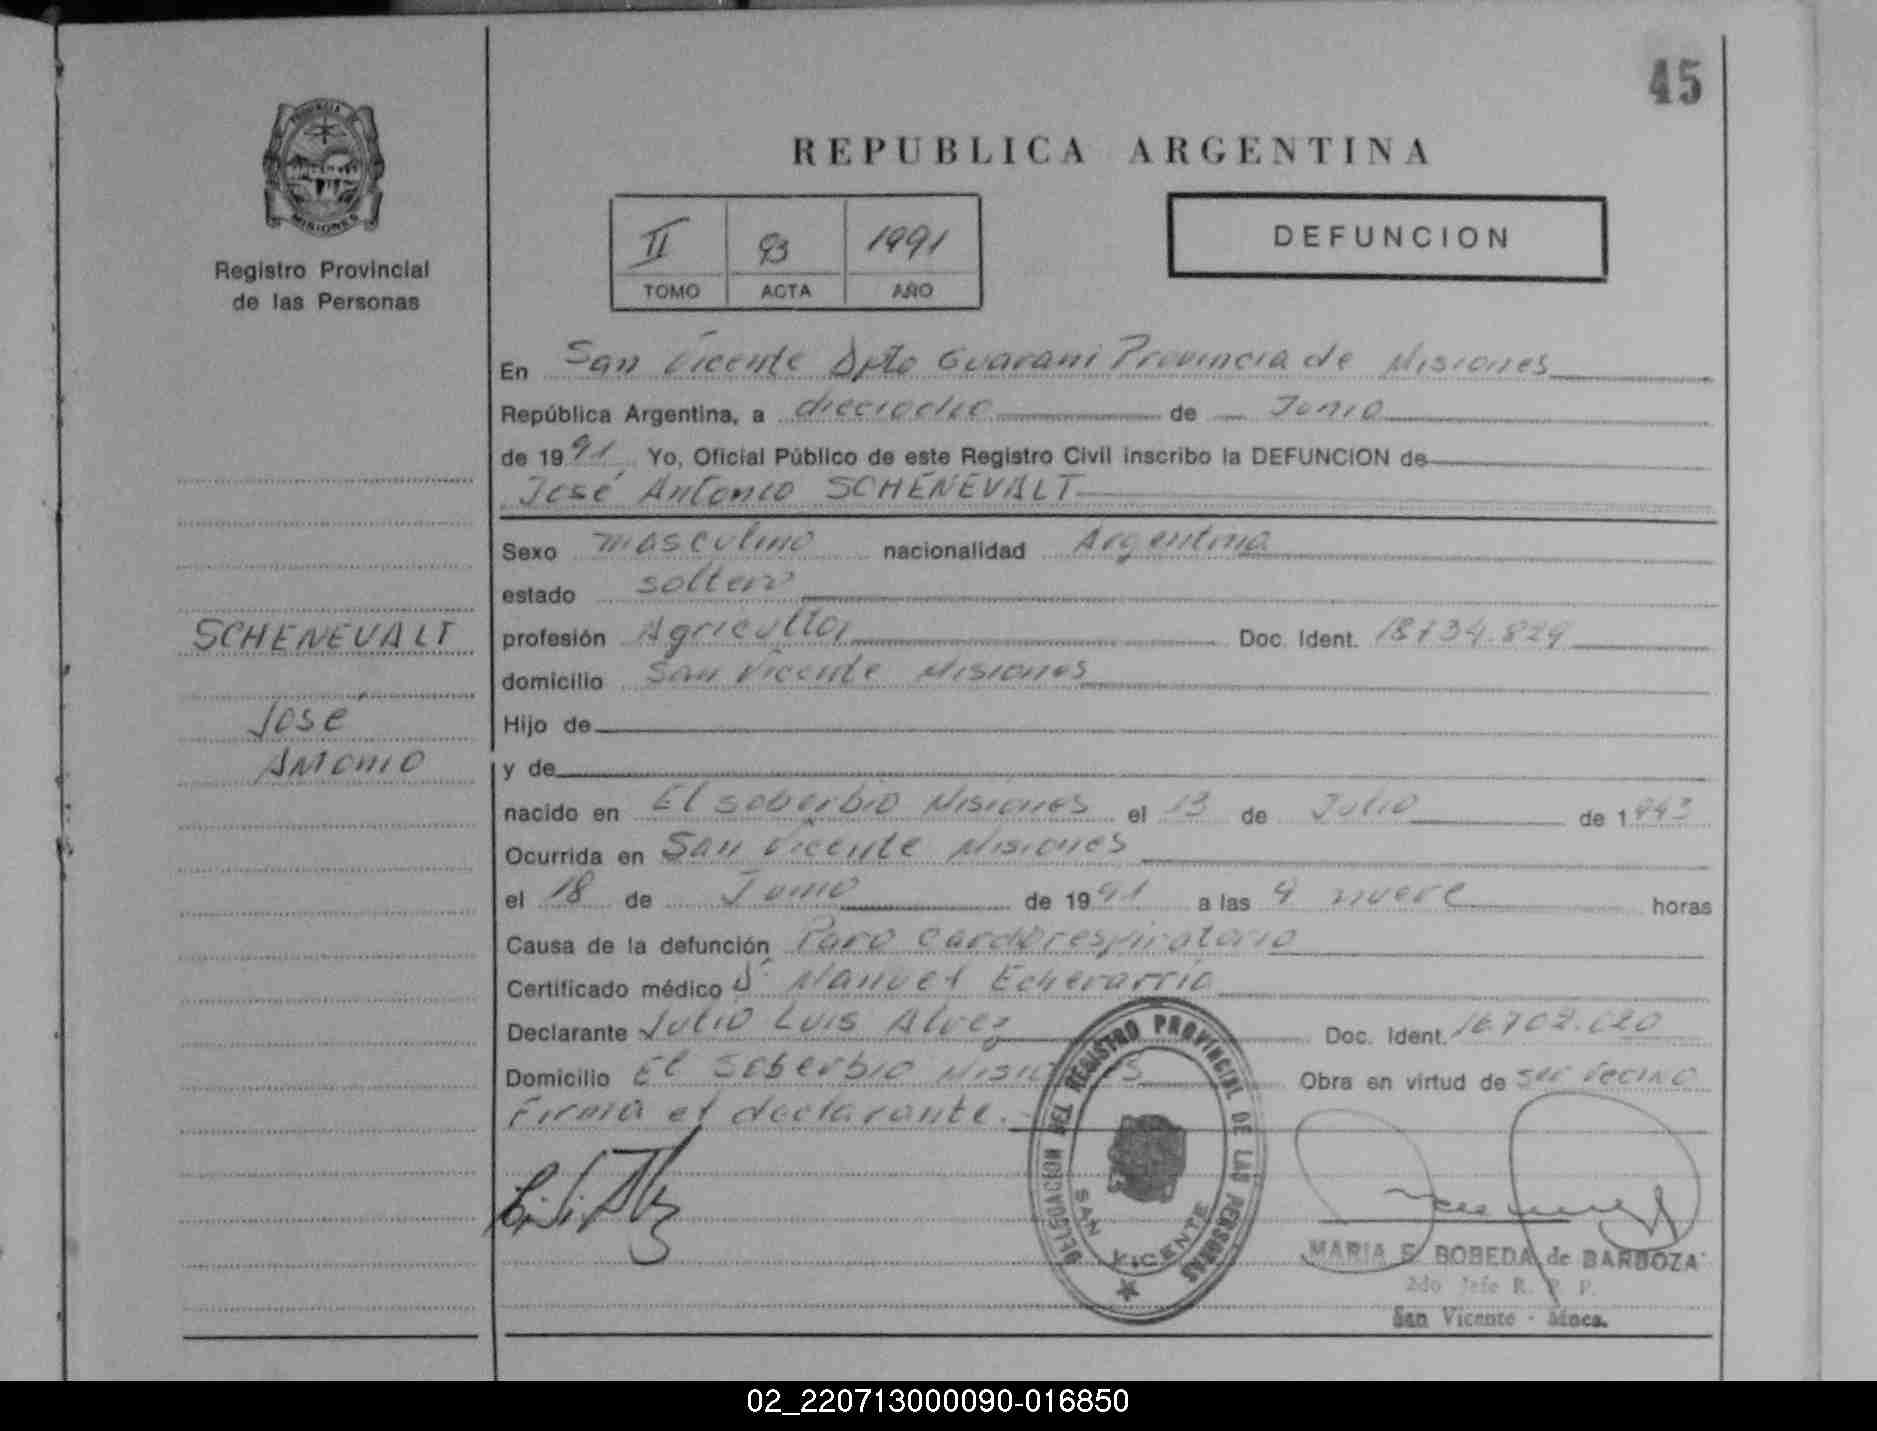 45
PROVINCIA
MISIONES
Registro Provincial
de las Personas
REPUBLICA ARGENTINA
II 93 1991
TOMO ACTA AÑO
DEFUNCION
En San Vicente Dpto Guarani Provincia de Misiones
República Argentina, a dieciocho de Junio
de 1991 Yo, Oficial Público de este Registro Civil inscribo la DEFUNCION de
José Antonio SCHENEVALT
Sexo masculino nacionalidad Argentina
estado soltero
SCHENEVALT
profesión Agricultor Doc. Ident. 18734.829
domicilio San Vicente Misiones
José
Antonio
Hijo de
y de
nacido en El soberbio Misiones el 13 de Julio de 1943
Ocurrida en San Vicente Misiones
el 18 de Junio de 1991 a las 9 nueve horas
Causa de la defunción Paro cardiorespiratorio
Certificado médico Dr Manuel Echevarria
Declarante Julio Luis Alvez Doc. Ident. 16.702.020
Domicilio El Soberbio Misiones Obra en virtud de ser vecino
Firma el declarante.
DELEGACION DEL REGISTRO PROVINCIAL DE LAS PERSONAS
SAN VICENTE
MARIA E. BOBEDA de BARBOZA
2do Jefe R. P. P.
San Vicente - Mnes.
02_220713000090-016850